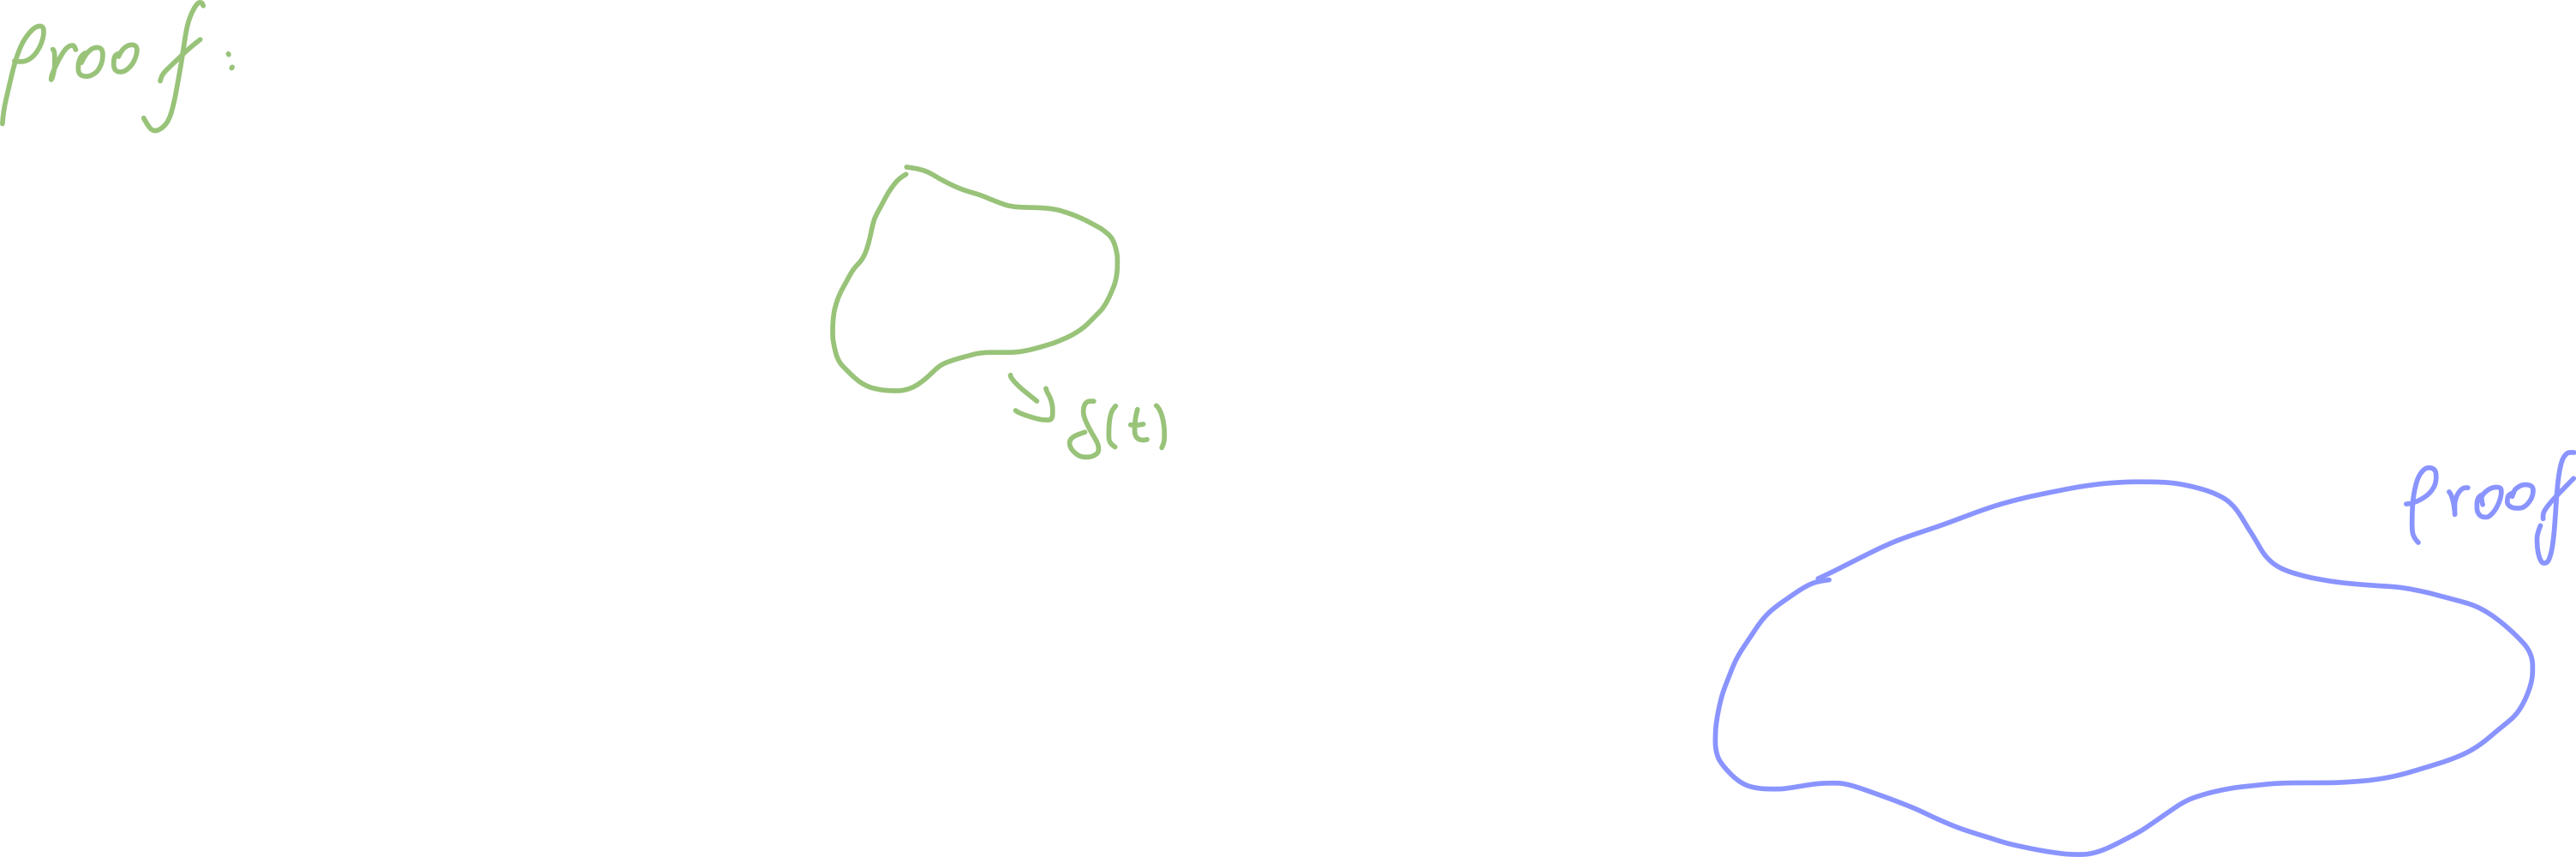 proof:
γ(t)
proof